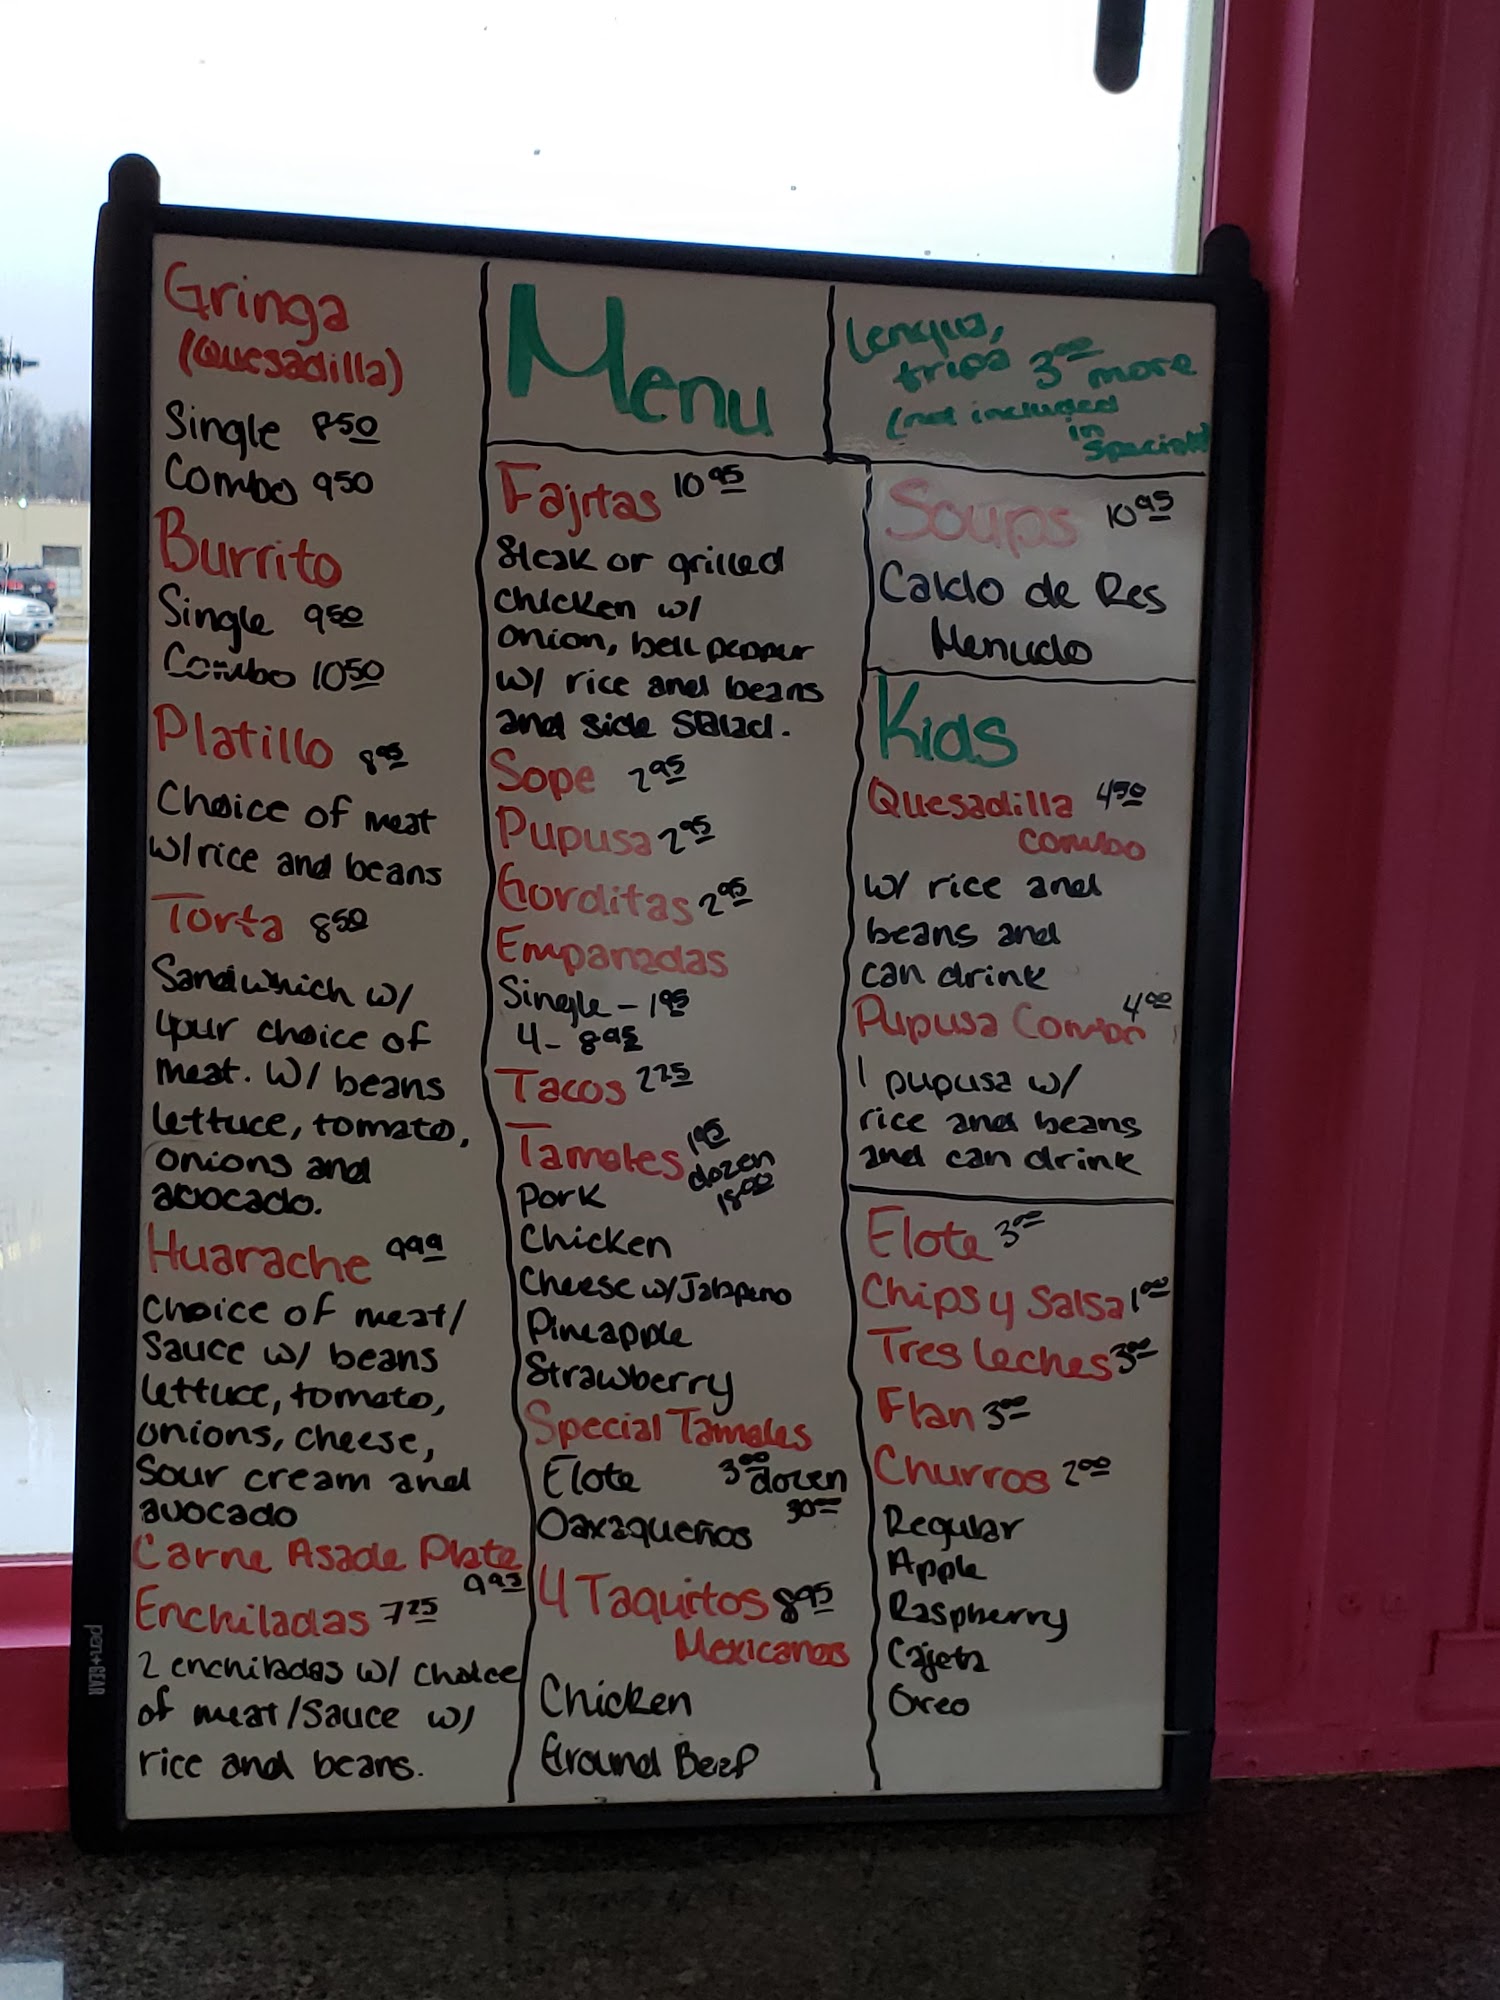 Gringa
(Quesadilla)
Single 8.50
Combo 9.50
Burrito
Single 9.50
Combo 10.50
Platillo 8.95
Choice of meat
w/rice and beans
Torta 8.50
Sandwhich w/
your choice of
meat. w/ beans
lettuce, tomato,
onions and
avocado.
Huarache 9.99
Choice of meat/
Sauce w/ beans
lettuce, tomato,
onions, cheese,
sour cream and
avocado
Carne Asade Plate
9.95
Enchiladas 7.25
2 enchiladas w/ choice
of meat/sauce w/
rice and beans.
Menu
Fajitas 10.95
Steak or grilled
chicken w/
onion, bell pepper
w/ rice and beans
and side salad.
Sope 2.95
Pupusa 2.95
Gorditas 2.95
Empanadas
Single - 1.95
4 - 8.95
Tacos 2.25
Tamales 1.95
dozen
18.00
Pork
Chicken
Cheese w/Jalapeno
Pineapple
Strawberry
Special Tamales
Elote 3.00 dozen
30.00
Oaxaqueños
4 Taquitos 8.95
Mexicanos
Chicken
Ground Beef
Lengua,
tripa 3.00 more
(not included
in
Specials)
Soups 10.95
Caldo de Res
Menudo
Kids
Quesadilla 4.50
combo
w/ rice and
beans and
can drink
Pupusa Combo 4.00
1 pupusa w/
rice and beans
and can drink
Elote 3.00
Chips y Salsa 1.00
Tres Leches 3.00
Flan 3.00
Churros 2.00
Regular
Apple
Raspberry
Cajeta
Oreo
pen+GEAR